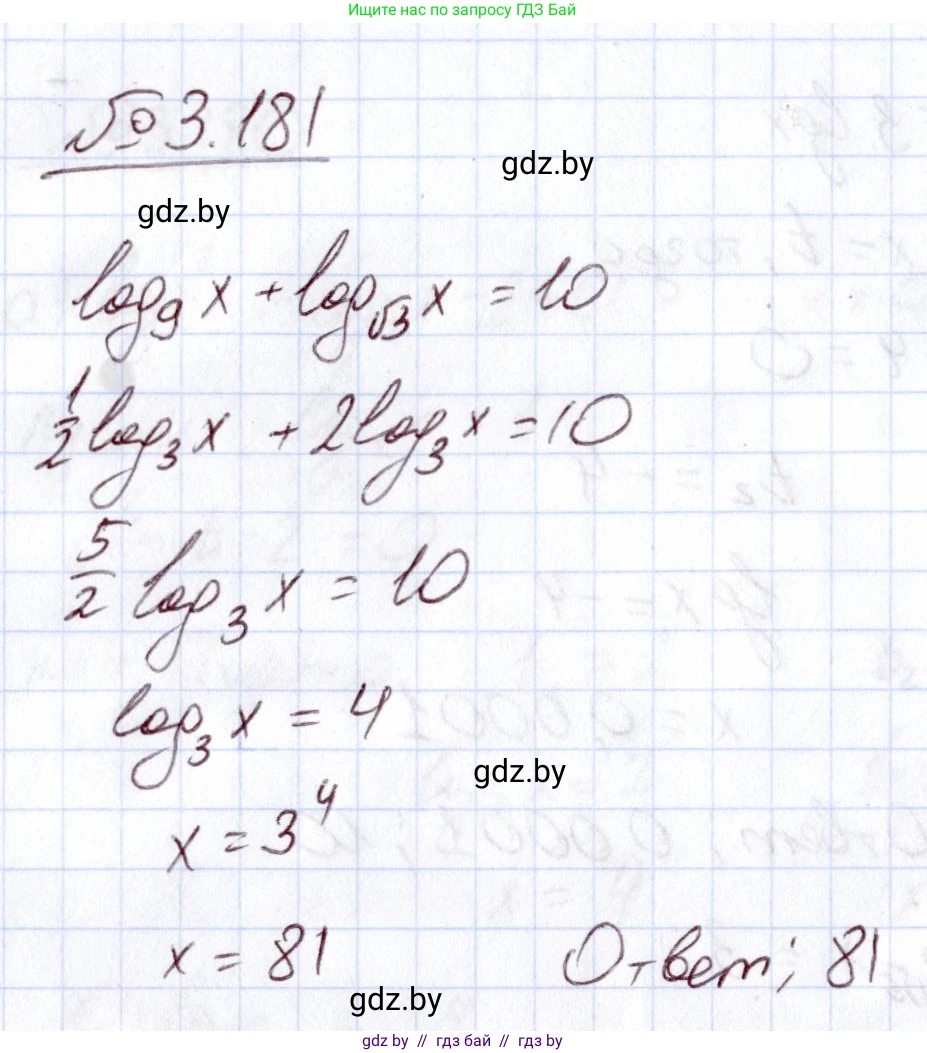 Ищите нас по запросу ГДЗ Бай
№ 3.181
gdz.by
gdz.by
log₉ x + log_√3 x = 10
1/2 log₃ x + 2 log₃ x = 10
5/2 log₃ x = 10
log₃ x = 4
gdz.by
x = 3⁴
x = 81 Ответ; 81
gdz.by
gdz.by // гдз бай // гдз by